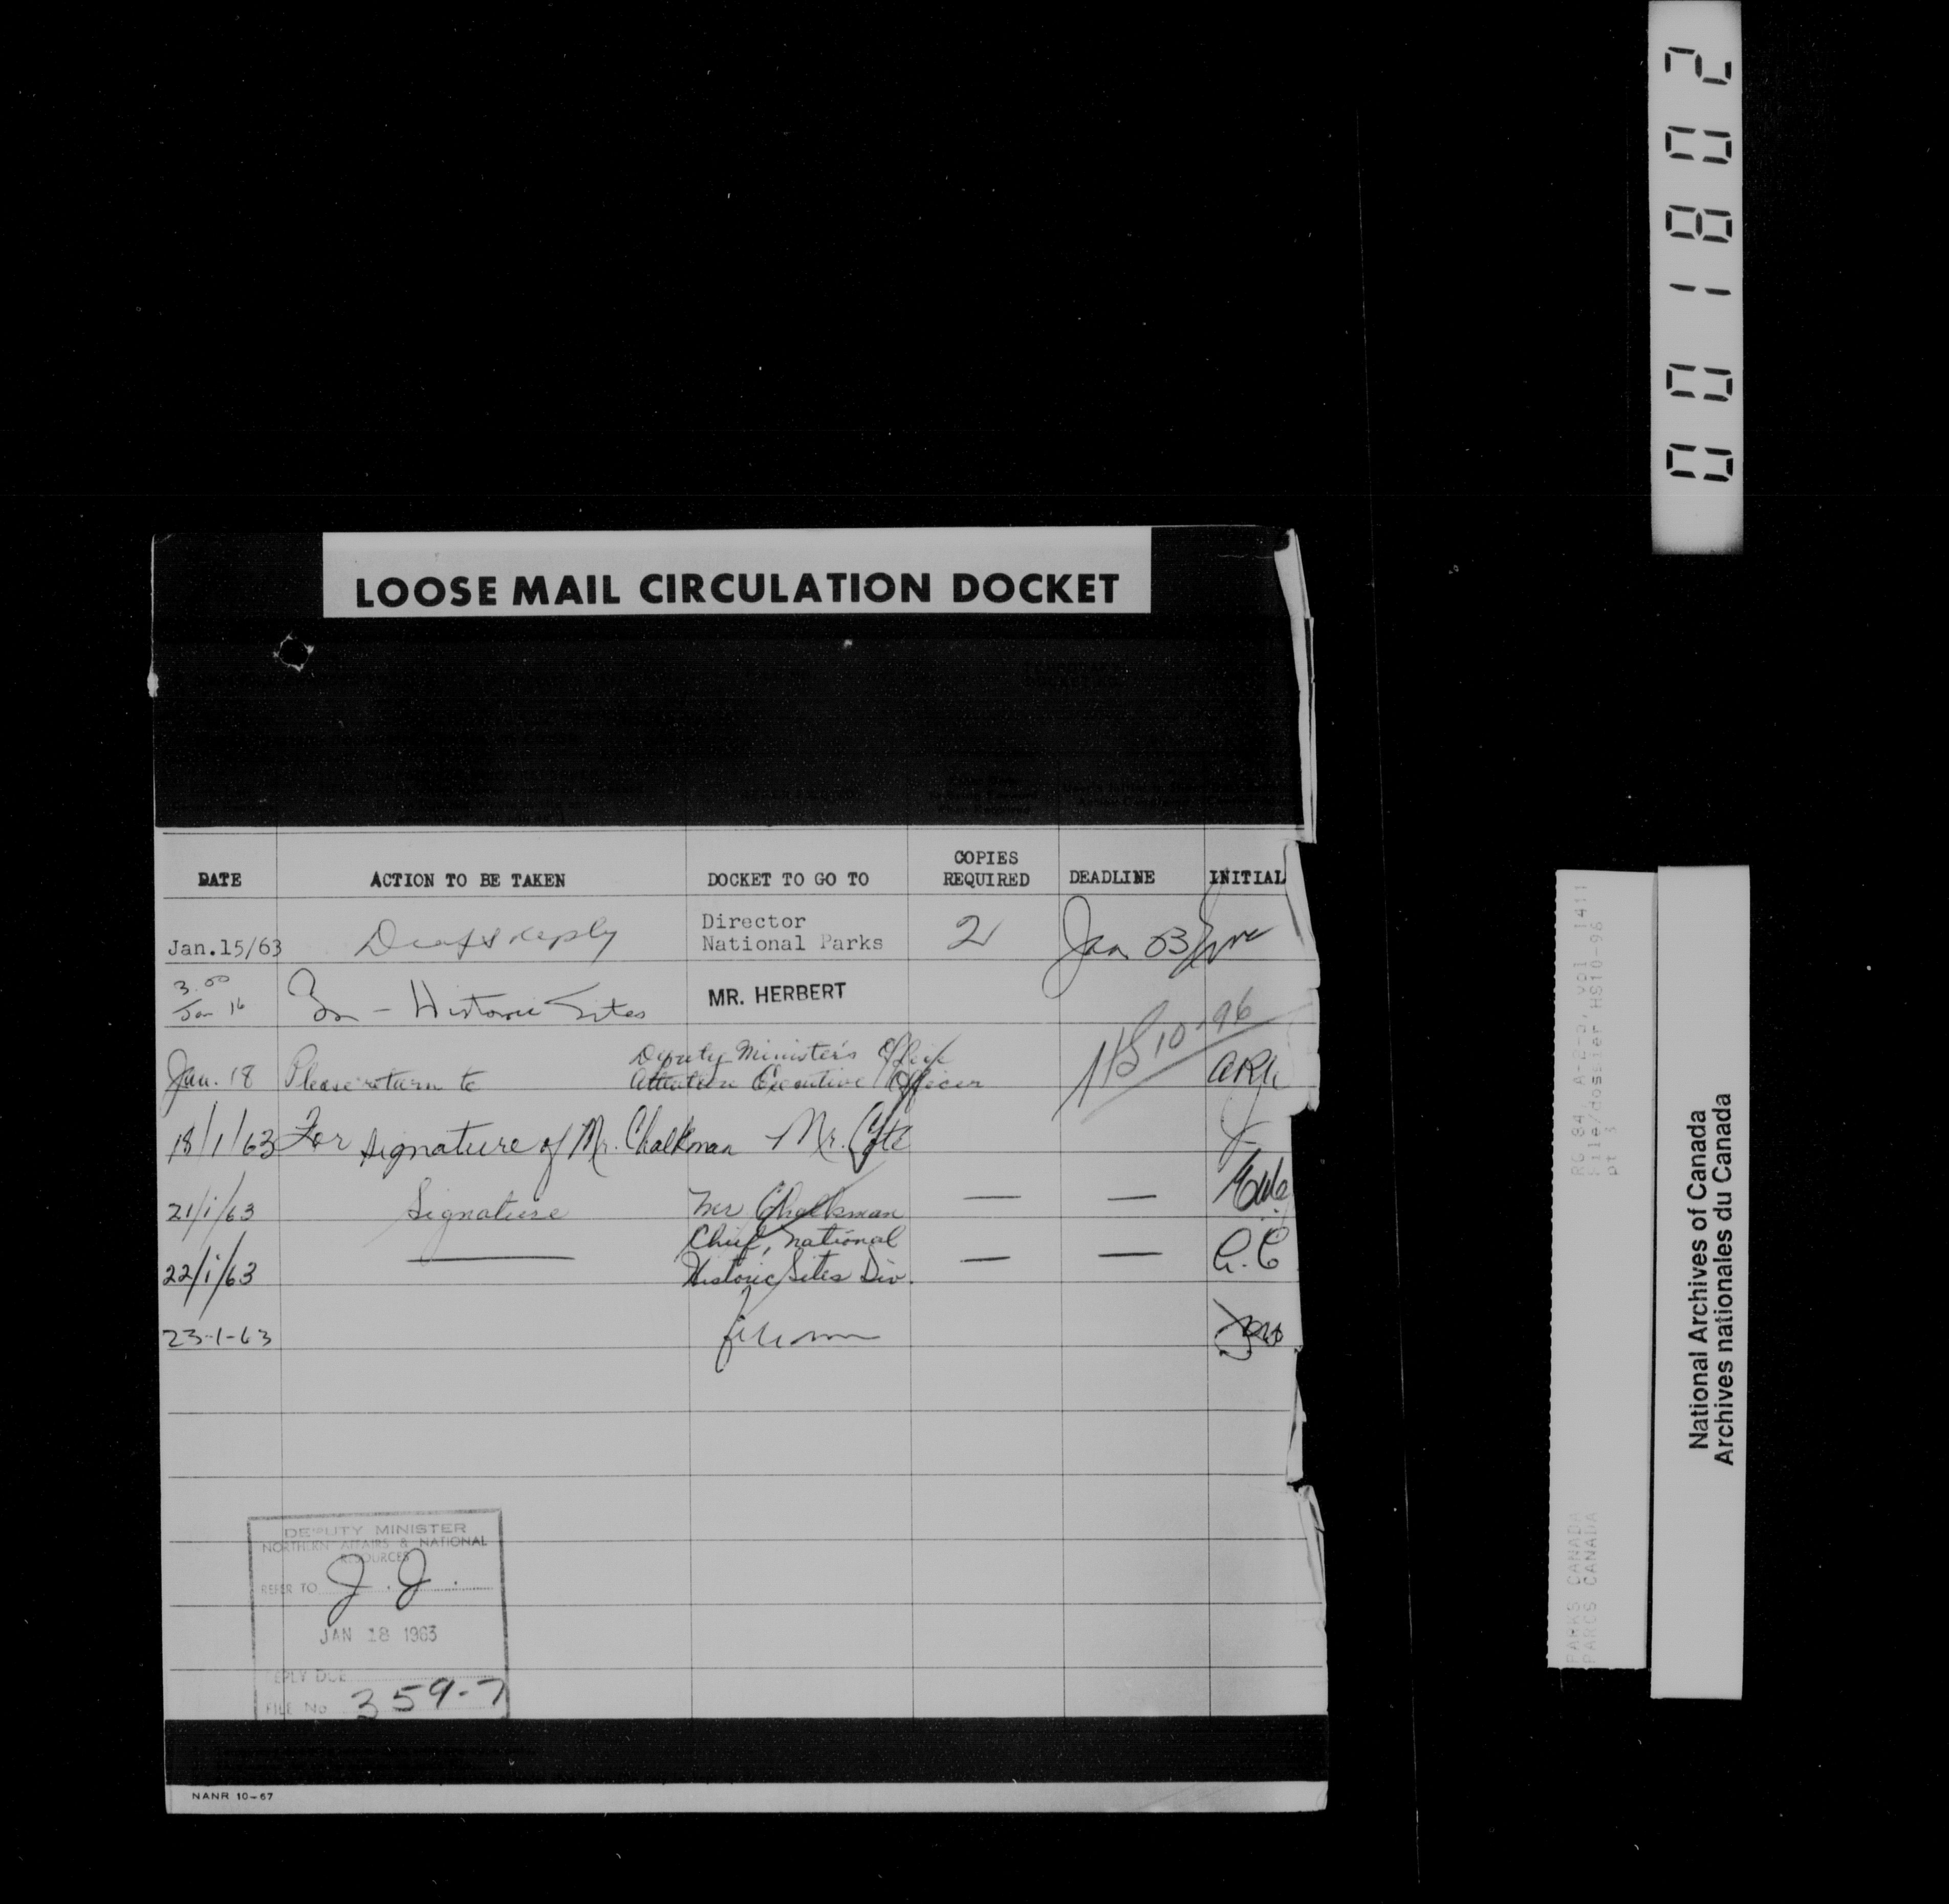 LOOSE MAIL CIRCULATION DOCKET
DATE ACTION TO BE TAKEN DOCKET TO GO TO COPIES REQUIRED DEADLINE INITIAL
Jan.15/63 Draft reply Director National Parks 2 Jan
3.00 Jan 16 - Historic Sites MR. HERBERT
HS 10-96
Jan. 18 Please return to Deputy Minister's Office
Attention Executive Officer
18/1/63 For signature of Mr. Chalkman Mr. Coté
21/1/63 Signature Mr Chalkman — —
22/1/63 — Chief, National Historic Sites Div. — — G.C
23-1-63
DEPUTY MINISTER
NORTHERN AFFAIRS & NATIONAL
RESOURCES
REFER TO J.J.
JAN 18 1963
REPLY DUE
FILE No 359-7
NANR 10-67
001802
RG 84, A-2-a, vol 1411
file/dossier HS10-96
pt 3
PARKS CANADA
PARCS CANADA
National Archives of Canada
Archives nationales du Canada